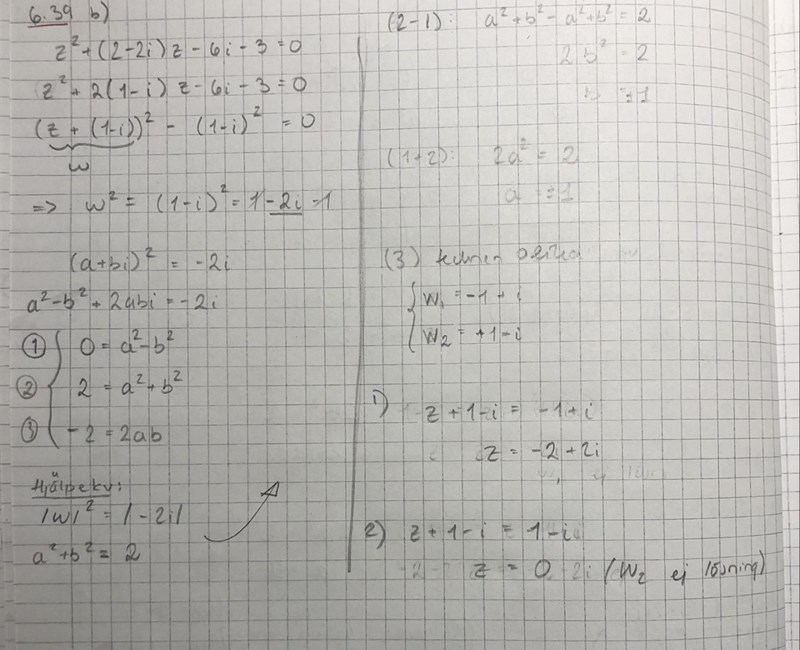 6.39 b)
z² + (2-2i)z - 6i - 3 = 0
z² + 2(1-i) z - 6i - 3 = 0
(z + (1-i))² - (1-i)² = 0
w
=> w² = (1-i)² = 1 - 2i - 1
(a+bi)² = -2i
a² - b² + 2abi = -2i
① 0 = a² - b²
② 2 = a² + b²
③ -2 = 2ab
Hjälpekv:
|w|² = |-2i|
a² + b² = 2
(2-1): a² + b² - a² + b² = 2
2b² = 2
b = ±1
(1+2): 2a² = 2
a = ±1
(3)
w₁ = -1 + i
w₂ = +1 - i
1) z + 1 - i = -1 + i
z = -2 + 2i
2) z + 1 - i = 1 - i
z = 0 (w₂ ej lösning)